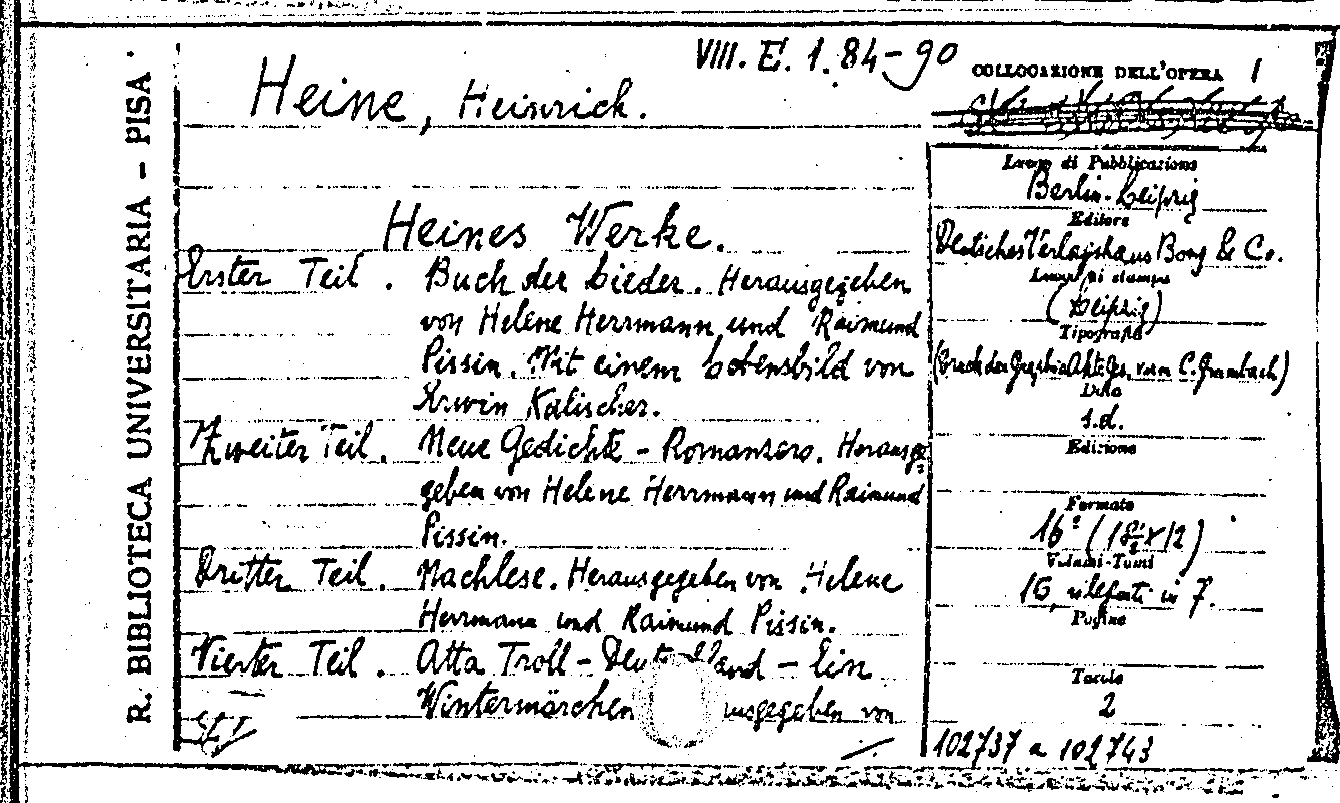 R. BIBLIOTECA UNIVERSITARIA - PISA
VIII. E. 1. 84-90
COLLOCAZIONE DELL'OPERA 1
Heine, Heinrich.
Heines Werke.
Erster Teil. Buch der Lieder. Herausgegeben
von Helene Herrmann und Raimund
Pissin. Mit einem Lebensbild von
Erwin Kalischer.
Zweiter Teil. Neue Gedichte - Romanzero. Herausge=
geben von Helene Herrmann und Raimund
Pissin.
Dritter Teil. Nachlese. Herausgegeben von Helene
Herrmann und Raimund Pissin.
Vierter Teil. Atta Troll - Deutschland - Ein
Wintermärchen usgegeben von
Luogo di Pubblicazione
Berlin-Leipzig
Editore
Deutsches Verlagshaus Bong & Co.
Luogo di stampa
(Leipzig)
Tipografia
(Druck der C. Grumbach)
Data
s.d.
Edizione
Formato
16° (18½×12)
Volumi-Tomi
16, in 7.
Pagine
Tavole
2
102737 a 102743